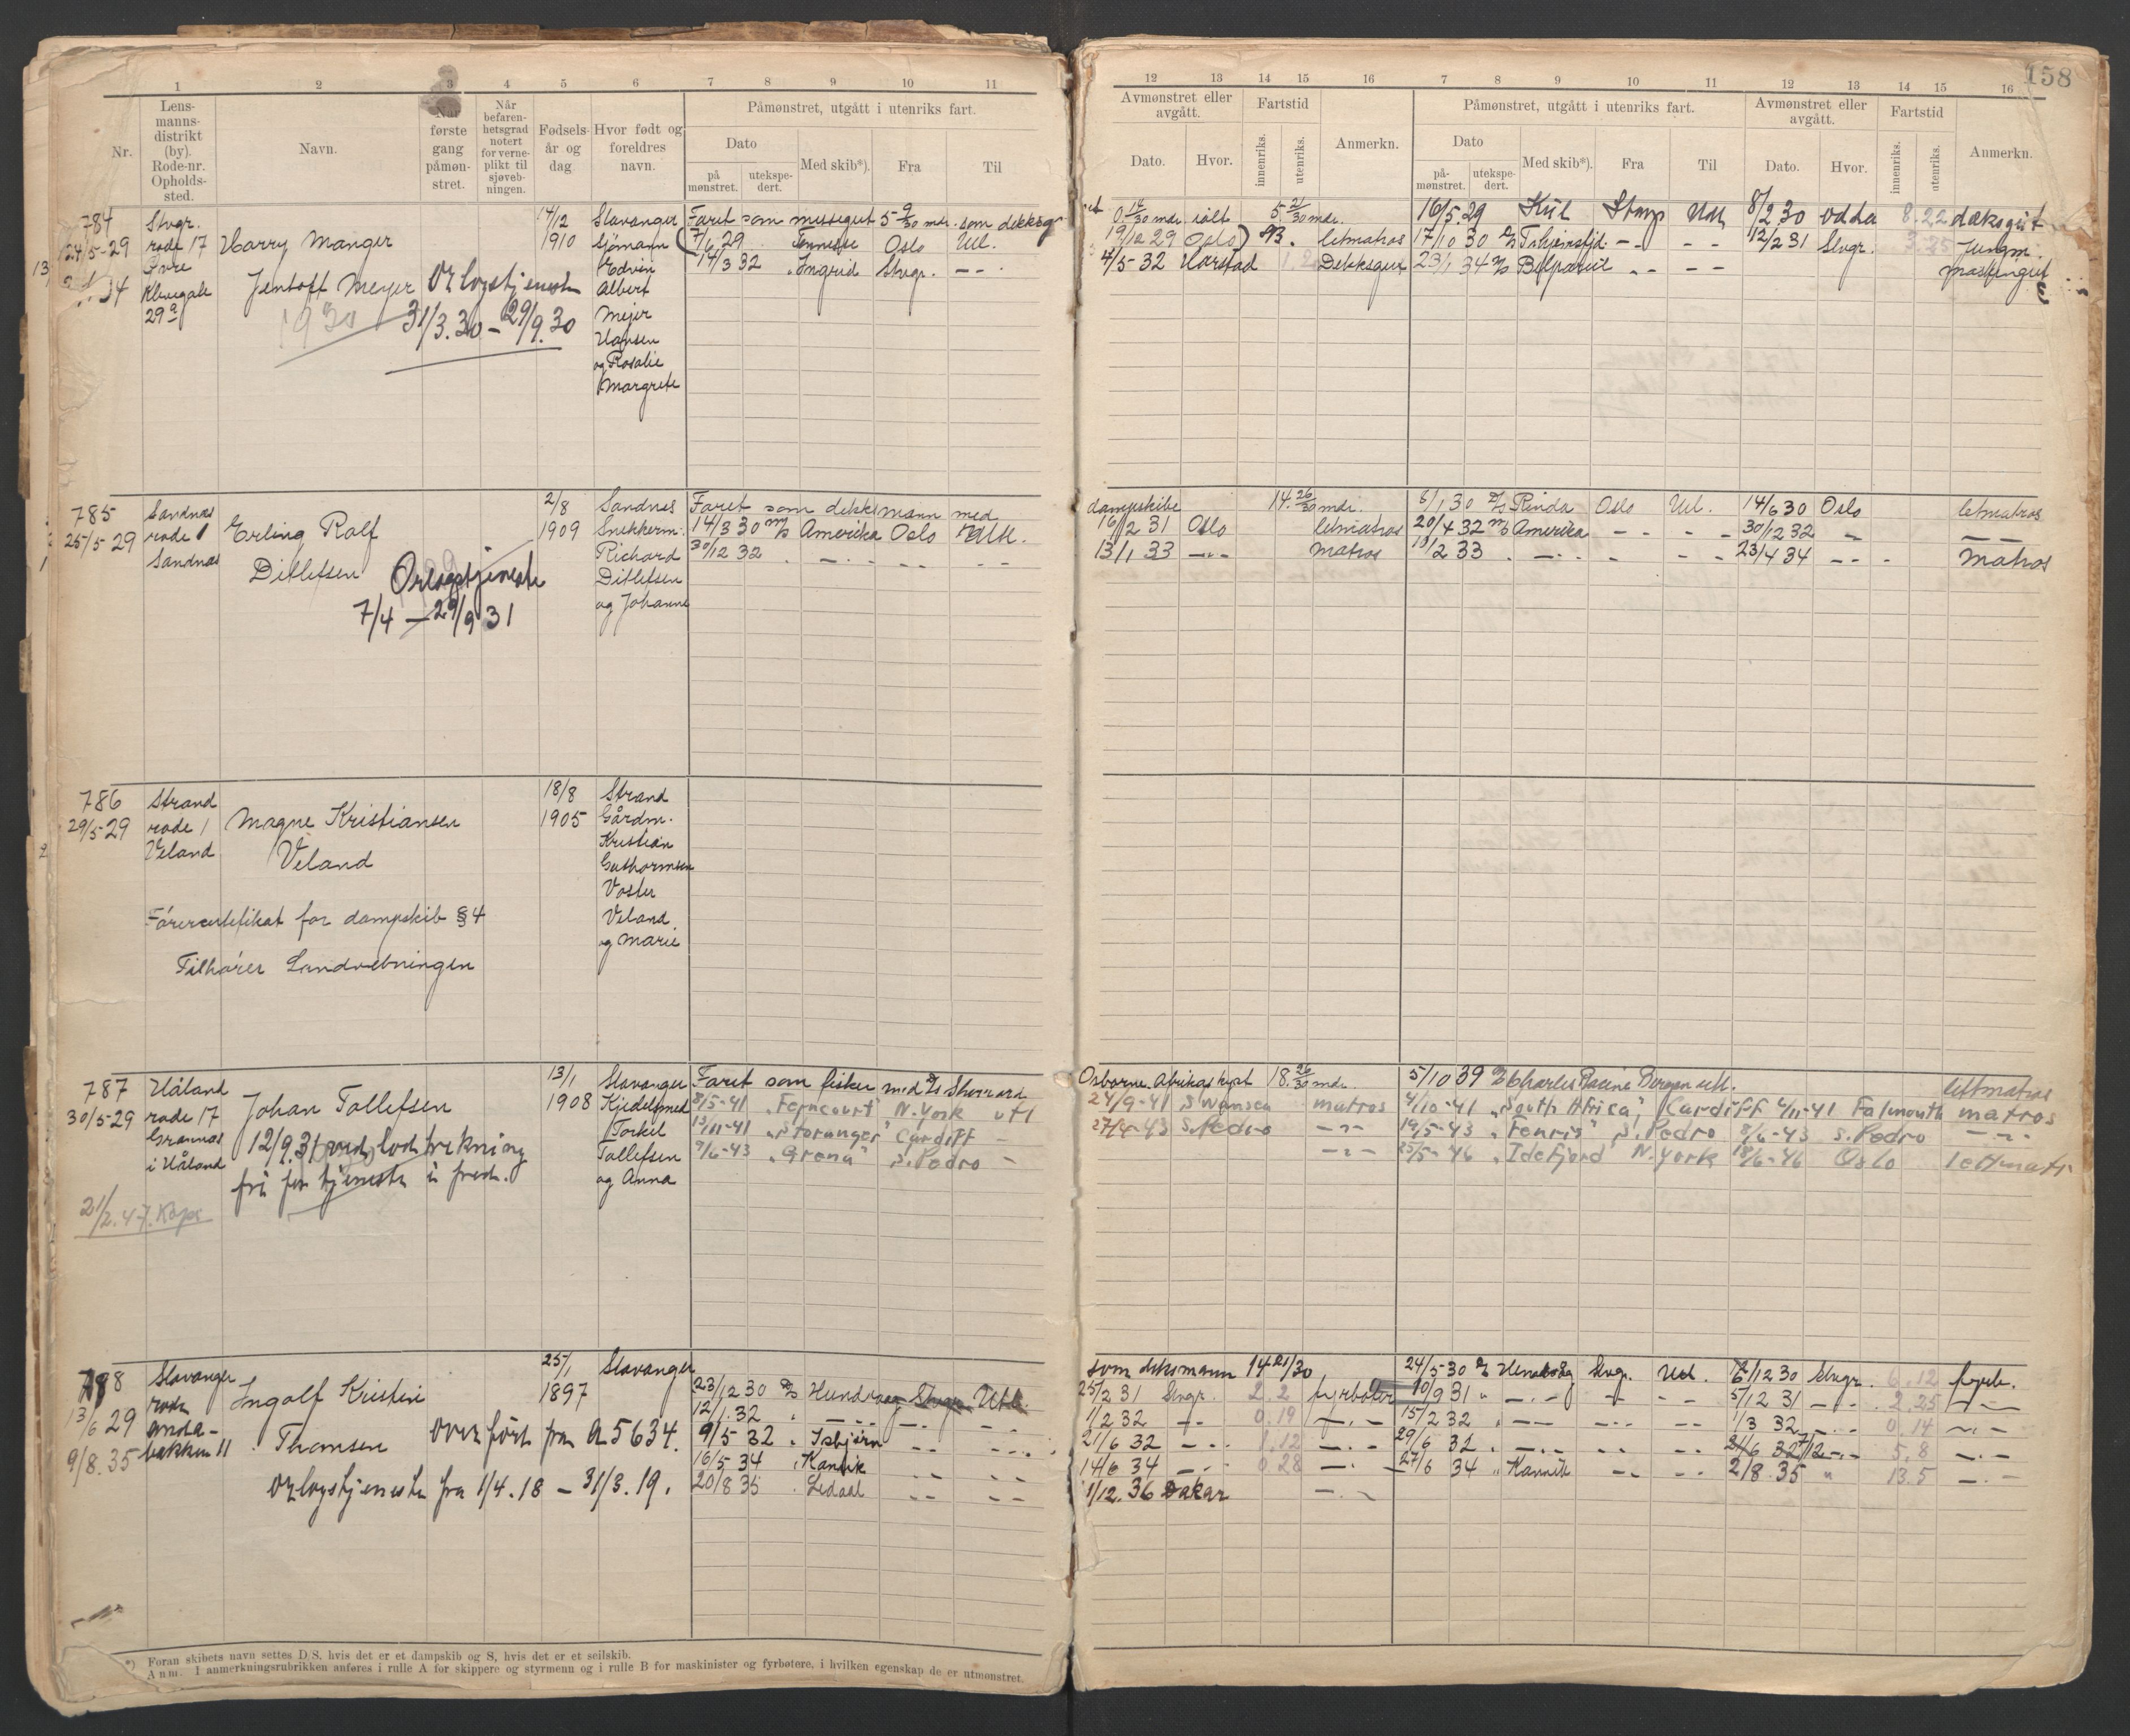 158
1 2 3 4 5 6 7 8 9 10 11
12 13 14 15 16 7 8 9 10 11 12 13 14 15 16
Nr.
Lens-
manns-
distrikt
(by).
Rode-nr.
Opholds-
sted.
Navn.
Når
første
gang
påmøn-
stret.
Når
befaren-
hetsgrad
notert
for verne-
plikt til
sjøveb-
ningen.
Fødsels-
år og
dag
Hvor født og
foreldres
navn.
Påmønstret, utgått i utenriks fart.
Dato
på
mønstret.
utekspe-
dert.
Med skib*).
Fra
Til
Avmønstret eller
avgått.
Dato.
Hvor.
Fartstid
innenriks.
utenriks.
Anmerkn.
Påmønstret, utgått i utenriks fart.
Dato
på-
mønstret.
utekspe-
dert.
Med skib*).
Fra
Til
Avmønstret eller
avgått.
Dato.
Hvor.
Fartstid
innenriks.
utenriks.
Anmerkn.
784
24/5-29
Stvgr.
rode 17
Øvre
29a
Harry Manger
Jentoft Meyer
Orlogstjeneste
1930
31/3.30 - 29/9.30
14/12
1910
Stavanger
Sjømann
Edvin
Albert
Mejer
Hansen
og Rosalie
Margrete
Faret som messegut 5 9/30 mdr. som deksg
7/6 29 Tennesse Oslo Utl.
14/3 32 Ingrid Stvgr. - -
0.14/30 mdr. ialt 5.21/30 mdr.
19/12 29 Oslo) 93. letmatros
4/5-32 Harstad Dekksgut
16/5.29 Kiil Utl 8/2 30 Odda 8.22 dæksgut
17/10 30 - - - - 12/2 31 Stvgr. 3.25 Jungm.
23/1 34 Belpareil - - - - maskingut
785
25/5-29
Sandnes
rode 1
Sandnes
Erling Rolf
Ditlefsen
Orlogstjeneste
7/4 - 29/9 31
2/8
1909
Sandnes
Snekkerm.
Richard
Ditlefsen
og Johanne
Faret som dekksmann med
14/3 30 m/s Amerika Oslo Utl.
30/12 32 - - - - - -
dampskibe 14.26/30 mdr.
16/2 31 Oslo letmatros
13/1 33 - - matros
8/1 30 Rinda Oslo Utl. 14/6 30 Oslo letmatros
20/4 32 m/s Amerika - - - - 30/12 32 - - -
13/2 33 - - - - - - 23/4 34 - - - matros
786
29/5-29
Strand
rode 1
Veland
Magne Kristiansen
Veland
Førercertifikat for dampskib § 4
Tilhører Landvebningen
18/8
1905
Strand
Gårdm.
Kristian
Guthormsen
Voster
Veland
og Marie
787
30/5-29
Håland
rode 17
Grannes
i Håland
21/2.47.
Johan Tollefsen
12/9.31 ved lodtrekning
fri for tjeneste i fred.
13/1
1908
Stavanger
Kjedelsmed
Torkel
Tollefsen
og Anna
Faret som fisker med
8/5-41 "Ferncourt" N.York utl
13/11-41 "Storanger" Cardiff -
9/6-43 "Grena" S.Pedro -
Osborne 18.26/30 mdr.
24/9-41 Swansea matros
27/4-43 S.Pedro - " -
- " -
5/10 39 Charles Racine Bergen utl. lettmatros
4/10-41 "South Africa" Cardiff 4/11-41 Falmouth matros
19/5-43 "Fenris" S.Pedro 8/6-43 S.Pedro - " -
23/5-46 "Idefjord" N.York 18/6-46 Oslo lettmatr
788
13/6 29
9/8.35
Stavanger
rode
bakken 11
Ingolf Kristian
Thomsen
Overført fra A 5634.
Orlogstjeneste fra 1/4.18 - 31/3.19.
25/1
1897
Stavanger
23/12 30 Hundvaag Stvgr. Utl.
12/1.32 - - - - - -
9/5 32 Isbjørn - - - -
16/5 34 Kanvik - - - -
20/8 35 Ledaal - - - -
som deksmann 14 21/30
25/2 31 Stvgr. 2.2 fyrbøter
1/2 32 - - 0.19 - -
21/6 32 - - 1.12 - -
14/6 34 - - 0.28 - -
1/12.36 Dakar - -
24/5-30 Stvgr. Utl. 6/12 30 Stvgr. 6.12 fyrb.
10/9 31 - - - - 5/12 31 - - 2.25 - -
15/2 32 - - - - - - 1/3 32 - - 0.14 - -
29/6 32 - - - - - - 7/12 - - 5.8 - -
27/6 34 Kanvik - - - - 2/8.35 " 13.5 - -
*) Foran skibets navn settes D/S, hvis det er et dampskib og S, hvis det er et seilskib.
Anm. I anmerkningsrubrikken anføres i rulle A for skippere og styrmenn og i rulle B for maskinister og fyrbøtere, i hvilken egenskap de er utmønstret.